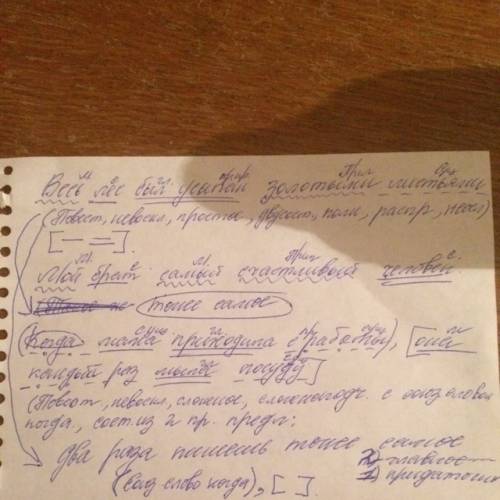 Весь лес был усыпан золотыми листьями
(Повест, невоскл, простое, двусост, полн, распр, неосл)
[— =].
Мой брат самый счастливый человек.
тоже самое
(Когда мама приходила с работы), [они
каждый раз мыли посуду]
(Повест, невоскл, сложное, сложноподч. с союз словом
когда, сост. из 2 пр. предл:
два раза пишешь тоже самое
(союз слово когда), [ ] 2) главное
1) придаточное